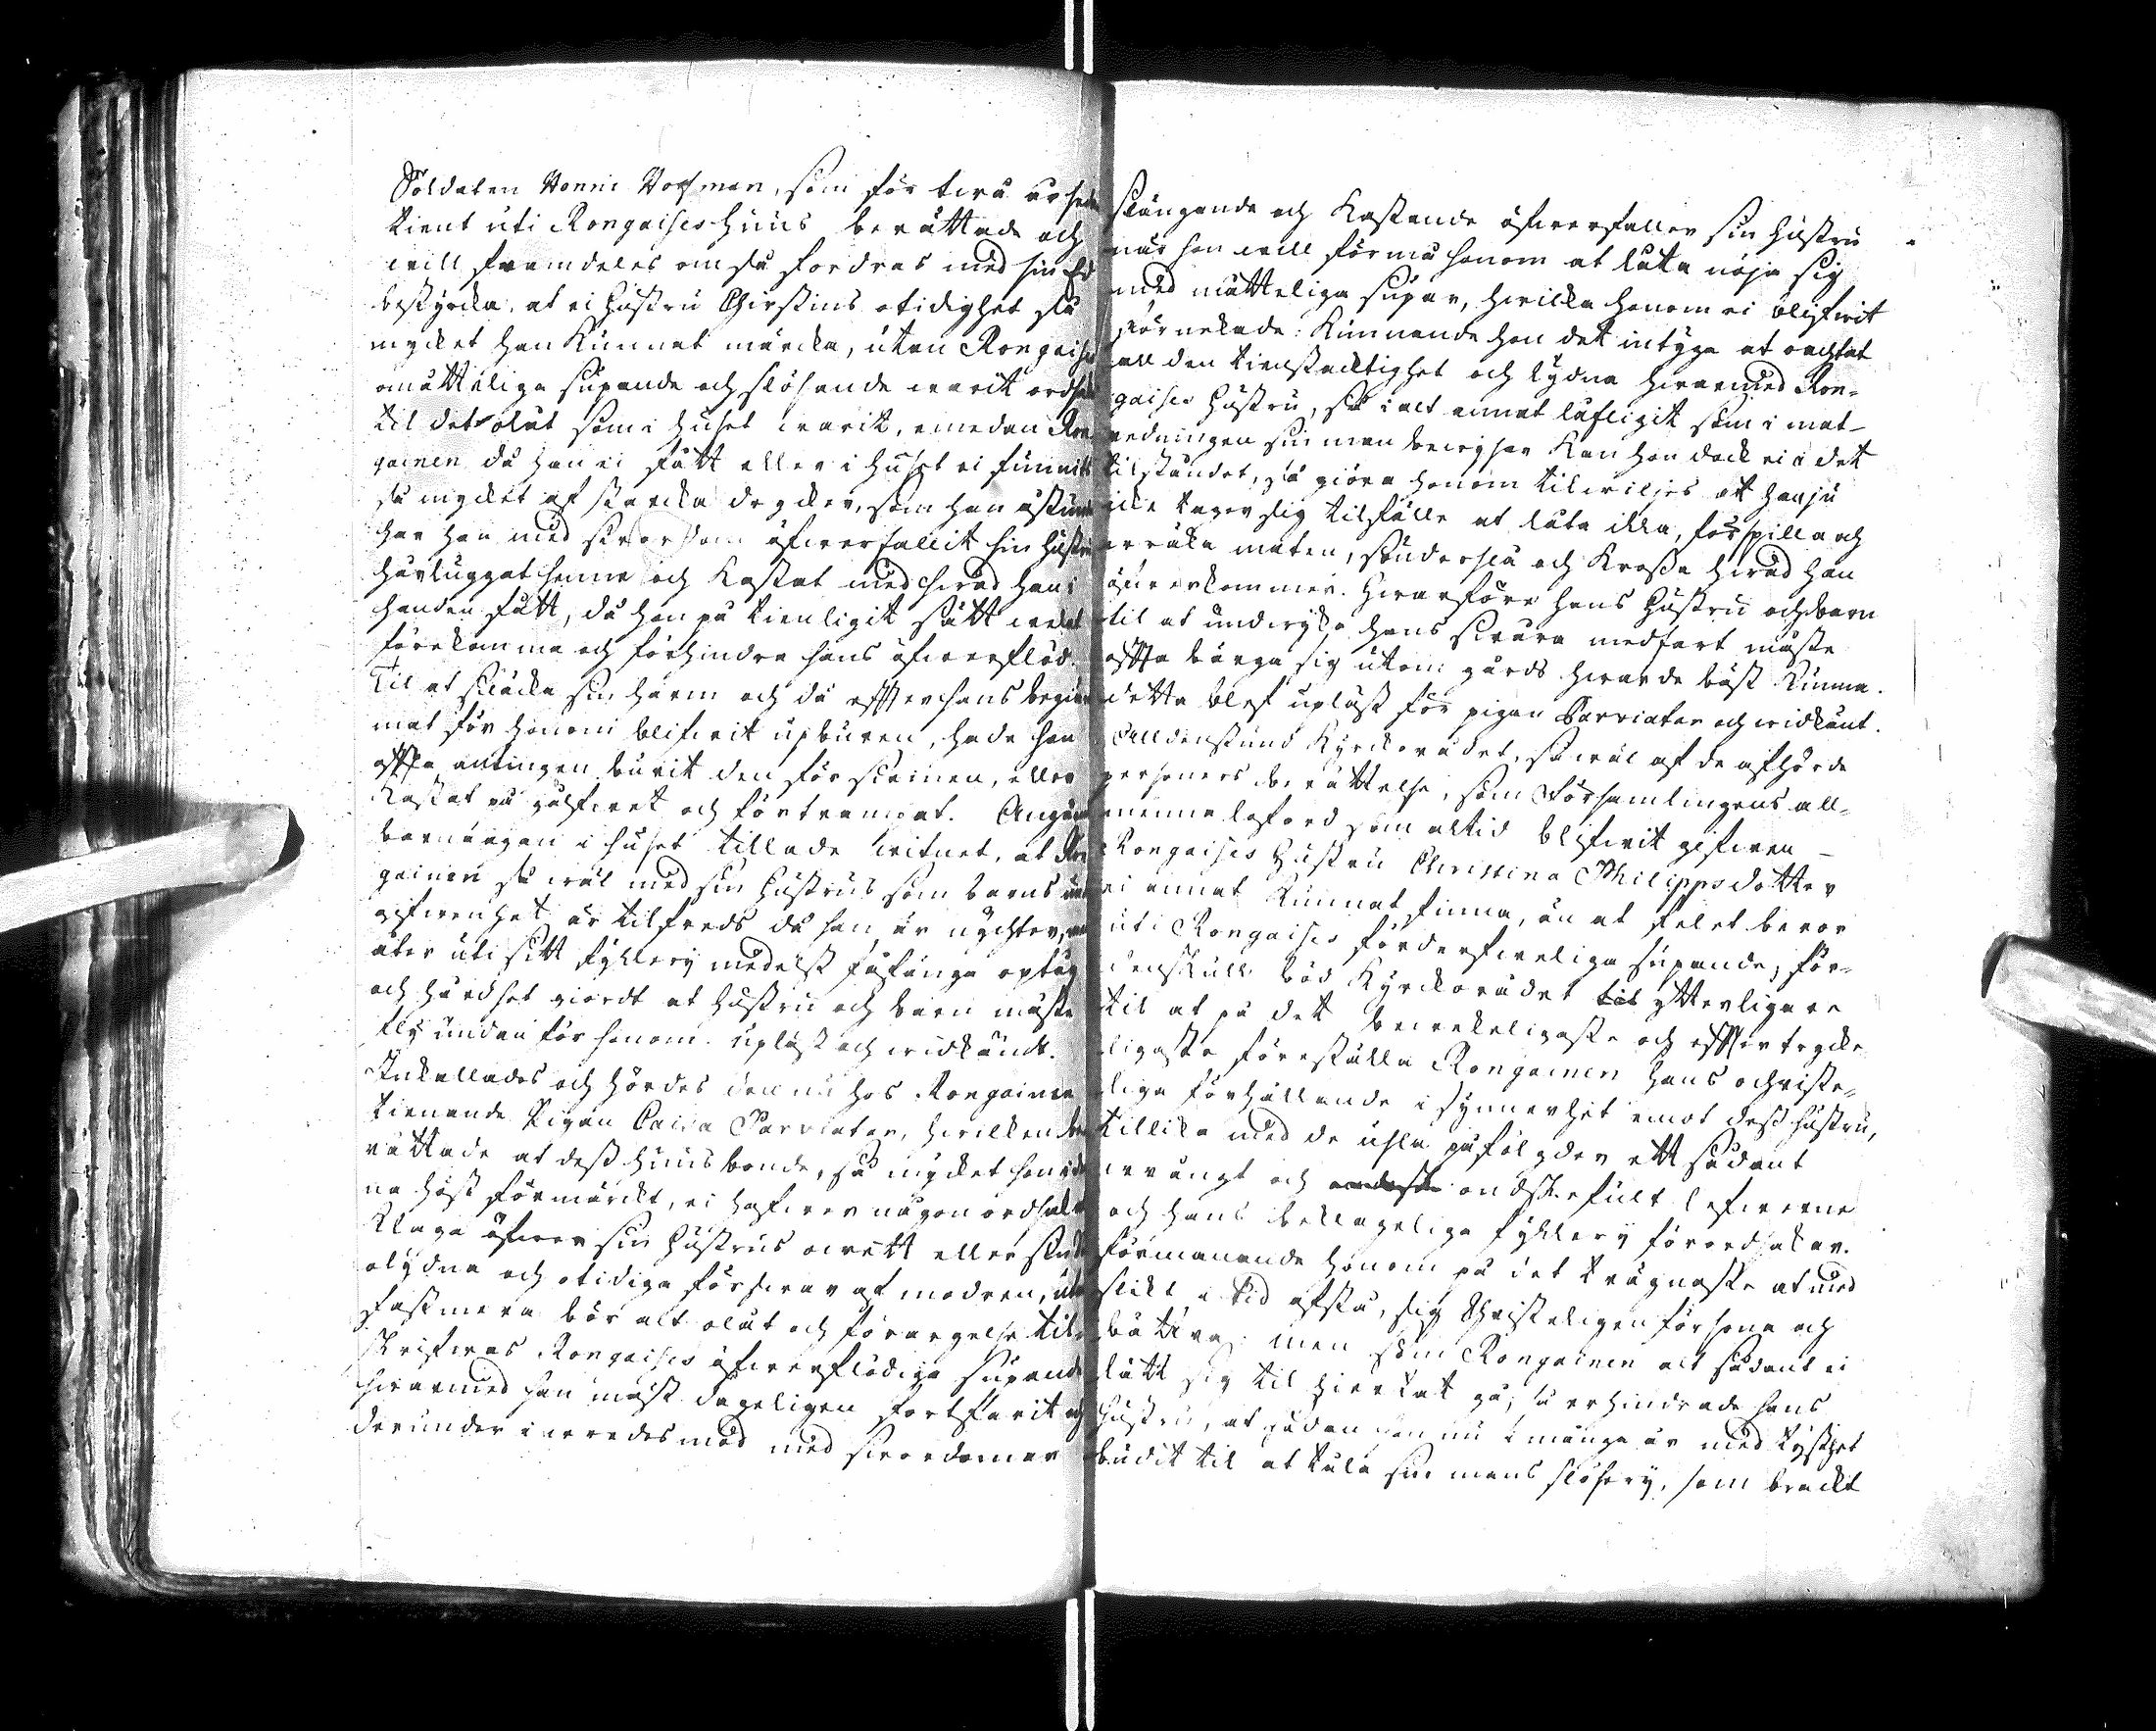 Soldaten Honni Hofman, som för twå år sedan
tient uti Rongaises huus berättade och
will framdeles om så fordras med sin Ed
bestyrcka, at ei Hustru Chirstins otidighet så
mycket han kunnat märcka, utan Rongaises
omåtteliga supande och slösande warit ordsak
til det olåt som i huset warit, emedan Ron
gainen då han ei fått eller i huset ei funnits
så mycket af starcka drycker, som han åstundat
har han med swordom öfwerfallit sin Hustru
hårluggat henne och kastat med hwad han i
handen fått, då hon på tienligit sätt welat
förekomma och förhindra hans öfwerflöd.
Til at släcka sin harm och då effter hans begiär
mat för honom blifwit upburen, hade han
offta antingen burit den för swinen, eller
kastat på gålfwet och förtrampat. Angående
barnaagan i huset tillade witnet, at Ron
gainen så wäl med sin Hustrus som barns und
gifwenhet är tilfreds då han är nychter, men
åter uti sitt fyllery medelst fåfänga optåg
och hårdhet giordt at Hustru och barn måste
fly undan för honom. upläst och widkändt.
Inkallades och hördes den nu hos Rongainen
tienande Pigan Caisa Parviatar, hwilken be
rättade at dess huusbonde, så mycket hon den
na höst förmärckt, ei hafwer någon ordsak at
klaga öfwer sin Hustrus owett eller
olydna och otidiga förswar af modren, utan
fastmera bör alt olåt och förargelse til
skrifwas Rongaises öfwerflödiga supande
hwarmed han mäst dageligen fortfarit och
derunder i wredesmod med swordomar
slängande och kastande öfwerfaller sin Hustru
när hon will förmå honom at låta nöja sig
med måtteliga supar, hwilka honom ei blifwit
förnekade: Kunnande hon det intyga at oachtat
all den tienstachtighet och lydna hwarmed Ron-
gaises Hustru, så i alt annat lafligit som i mat-
redningen sin man bewyser kan hon dock ei i det
tilståndet, så giöra honom til wiljes at han ju
icke tager sig tilfälle at låta illa, förspilla och
wräka maten, sönderslå och krossa hwad han
öfwerkommer. Hwarföre hans Hustru och barn
til at undwyka hans swåra medfart måste
offta bärga sig utom gårds hwar de bäst kunna.
detta blef upläst för pigan Parviatar och widkänt.
Alldenstund Kyrckorådet, så wäl af de afhörde
personers berättelse, som Församlingens all-
menna loford som altid blifwit gifwen
Rongaises Hustru Christina Philippsdotter
ei annat kunnat finna, än at felet beror
uti Rongaises förderfweliga supande, för-
denskull böd Kyrckorådet til ytterligare
til at på det bewekeligaste och effterteycke
ligaste föreställa Rongainen hans ochriste-
liga förhållande i synnerhet emot dess hustru,
tillika med de usla påfölgder ett sådant
wrångt och ondskefult lefwerne
och hans beklageliga fyllery förordsakar.
förmanande honom på det trägnaste at med
slikt i tid afstå, sig Christeligen försona och
bättra: men som Rongainen alt sådant ei
lätt sig til hiertat gå; så erhindrade hans
Hustru, at sedan hon nu i många år med tysthet
budit til at tåla sin mans slösery, som brackt